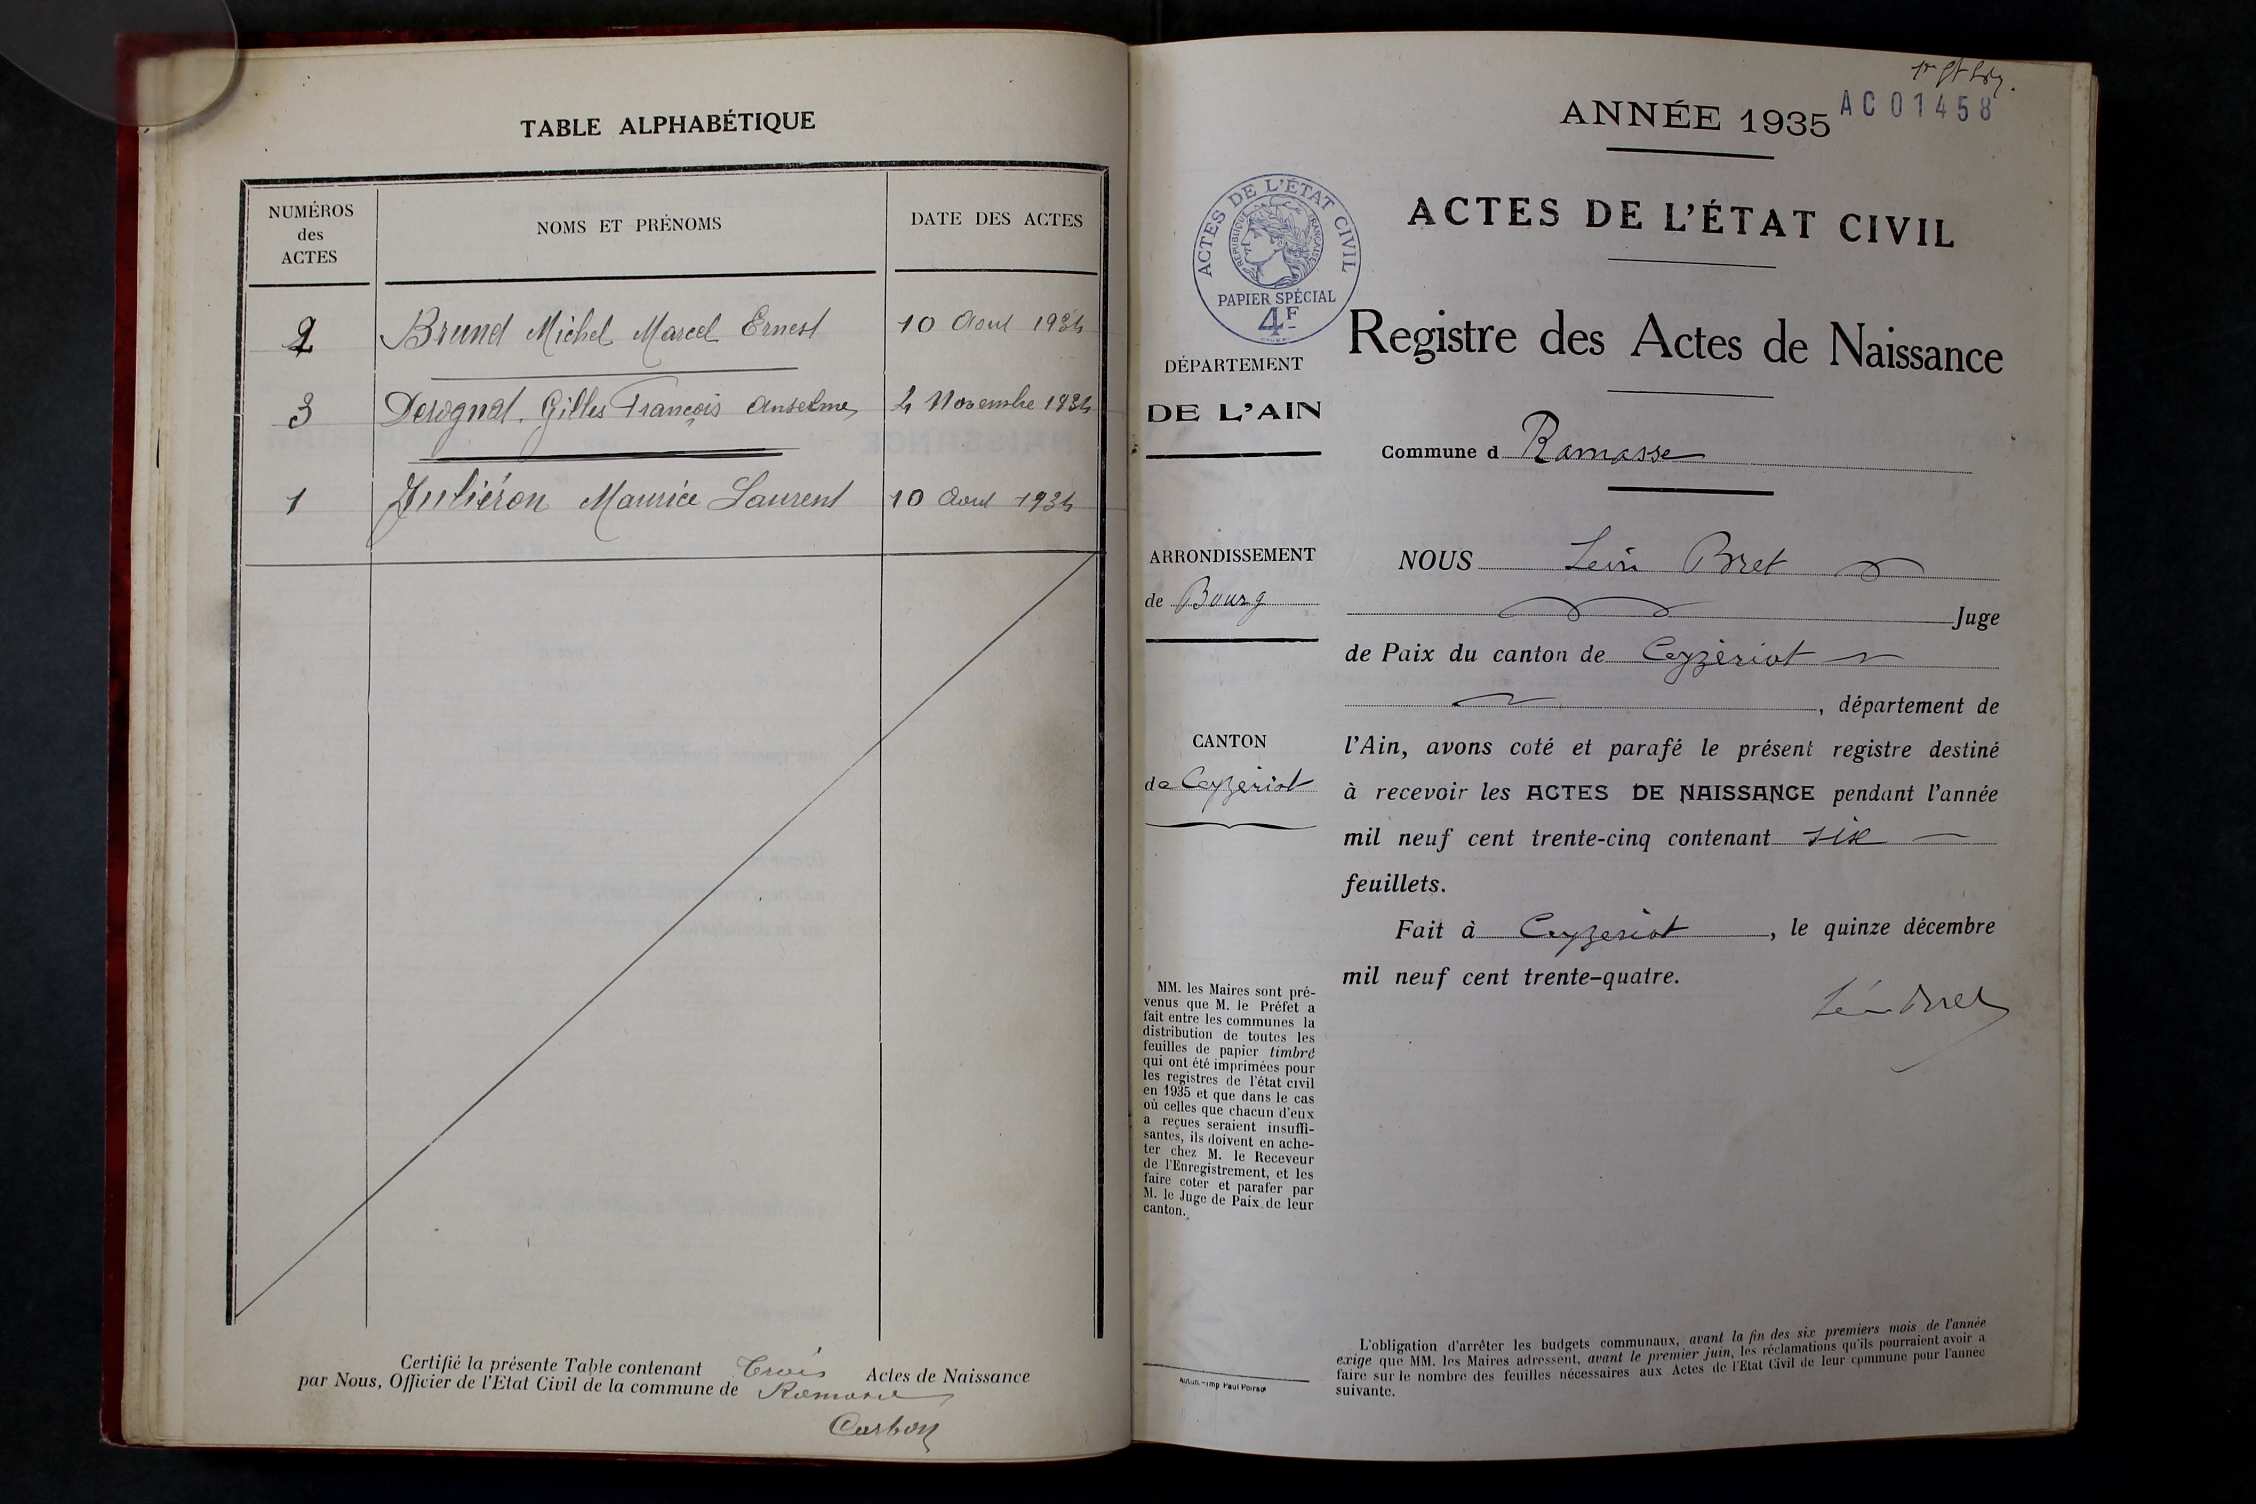 TABLE ALPHABÉTIQUE
NUMÉROS
des
ACTES
NOMS ET PRÉNOMS
DATE DES ACTES
2 Brunet Michel Marcel Ernest 10 Aout 1934
3 Derognat Gilles François Anselme 4 Novembre 1934
1 Juliéron Maurice Laurent 10 Aout 1934
Certifié la présente Table contenant Trois Actes de Naissance
par Nous, Officier de l'Etat Civil de la commune de Ramasse
Carbon
AC 01458
ANNÉE 1935
ACTES DE L'ÉTAT CIVIL
ACTES DE L'ÉTAT CIVIL
RÉPUBLIQUE FRANÇAISE
PAPIER SPÉCIAL
4F
Registre des Actes de Naissance
DÉPARTEMENT
DE L'AIN
Commune d Ramasse
ARRONDISSEMENT
de Bourg
CANTON
de Ceyzériat
MM. les Maires sont pré-
venus que M. le Préfet a
fait entre les communes la
distribution de toutes les
feuilles de papier timbré
qui ont été imprimées pour
les registres de l'état civil
en 1935 et que dans le cas
où celles que chacun d'eux
a reçues seraient insuffi-
santes, ils doivent en ache-
ter chez M. le Receveur
de l'Enregistrement, et les
faire coter et parafer par
M. le Juge de Paix de leur
canton.
NOUS Léon Bret
Juge
de Paix du canton de Ceyzériat
, département de
l'Ain, avons coté et parafé le présent registre destiné
à recevoir les ACTES DE NAISSANCE pendant l'année
mil neuf cent trente-cinq contenant six
feuillets.
Fait à Ceyzeriat, le quinze décembre
mil neuf cent trente-quatre.
Léon Bret
L'obligation d'arrêter les budgets communaux, avant la fin des six premiers mois de l'année
exige que MM. les Maires adressent, avant le premier juin, les réclamations qu'ils pourraient avoir à
faire sur le nombre des feuilles nécessaires aux Actes de l'Etat Civil de leur commune pour l'année
suivante.